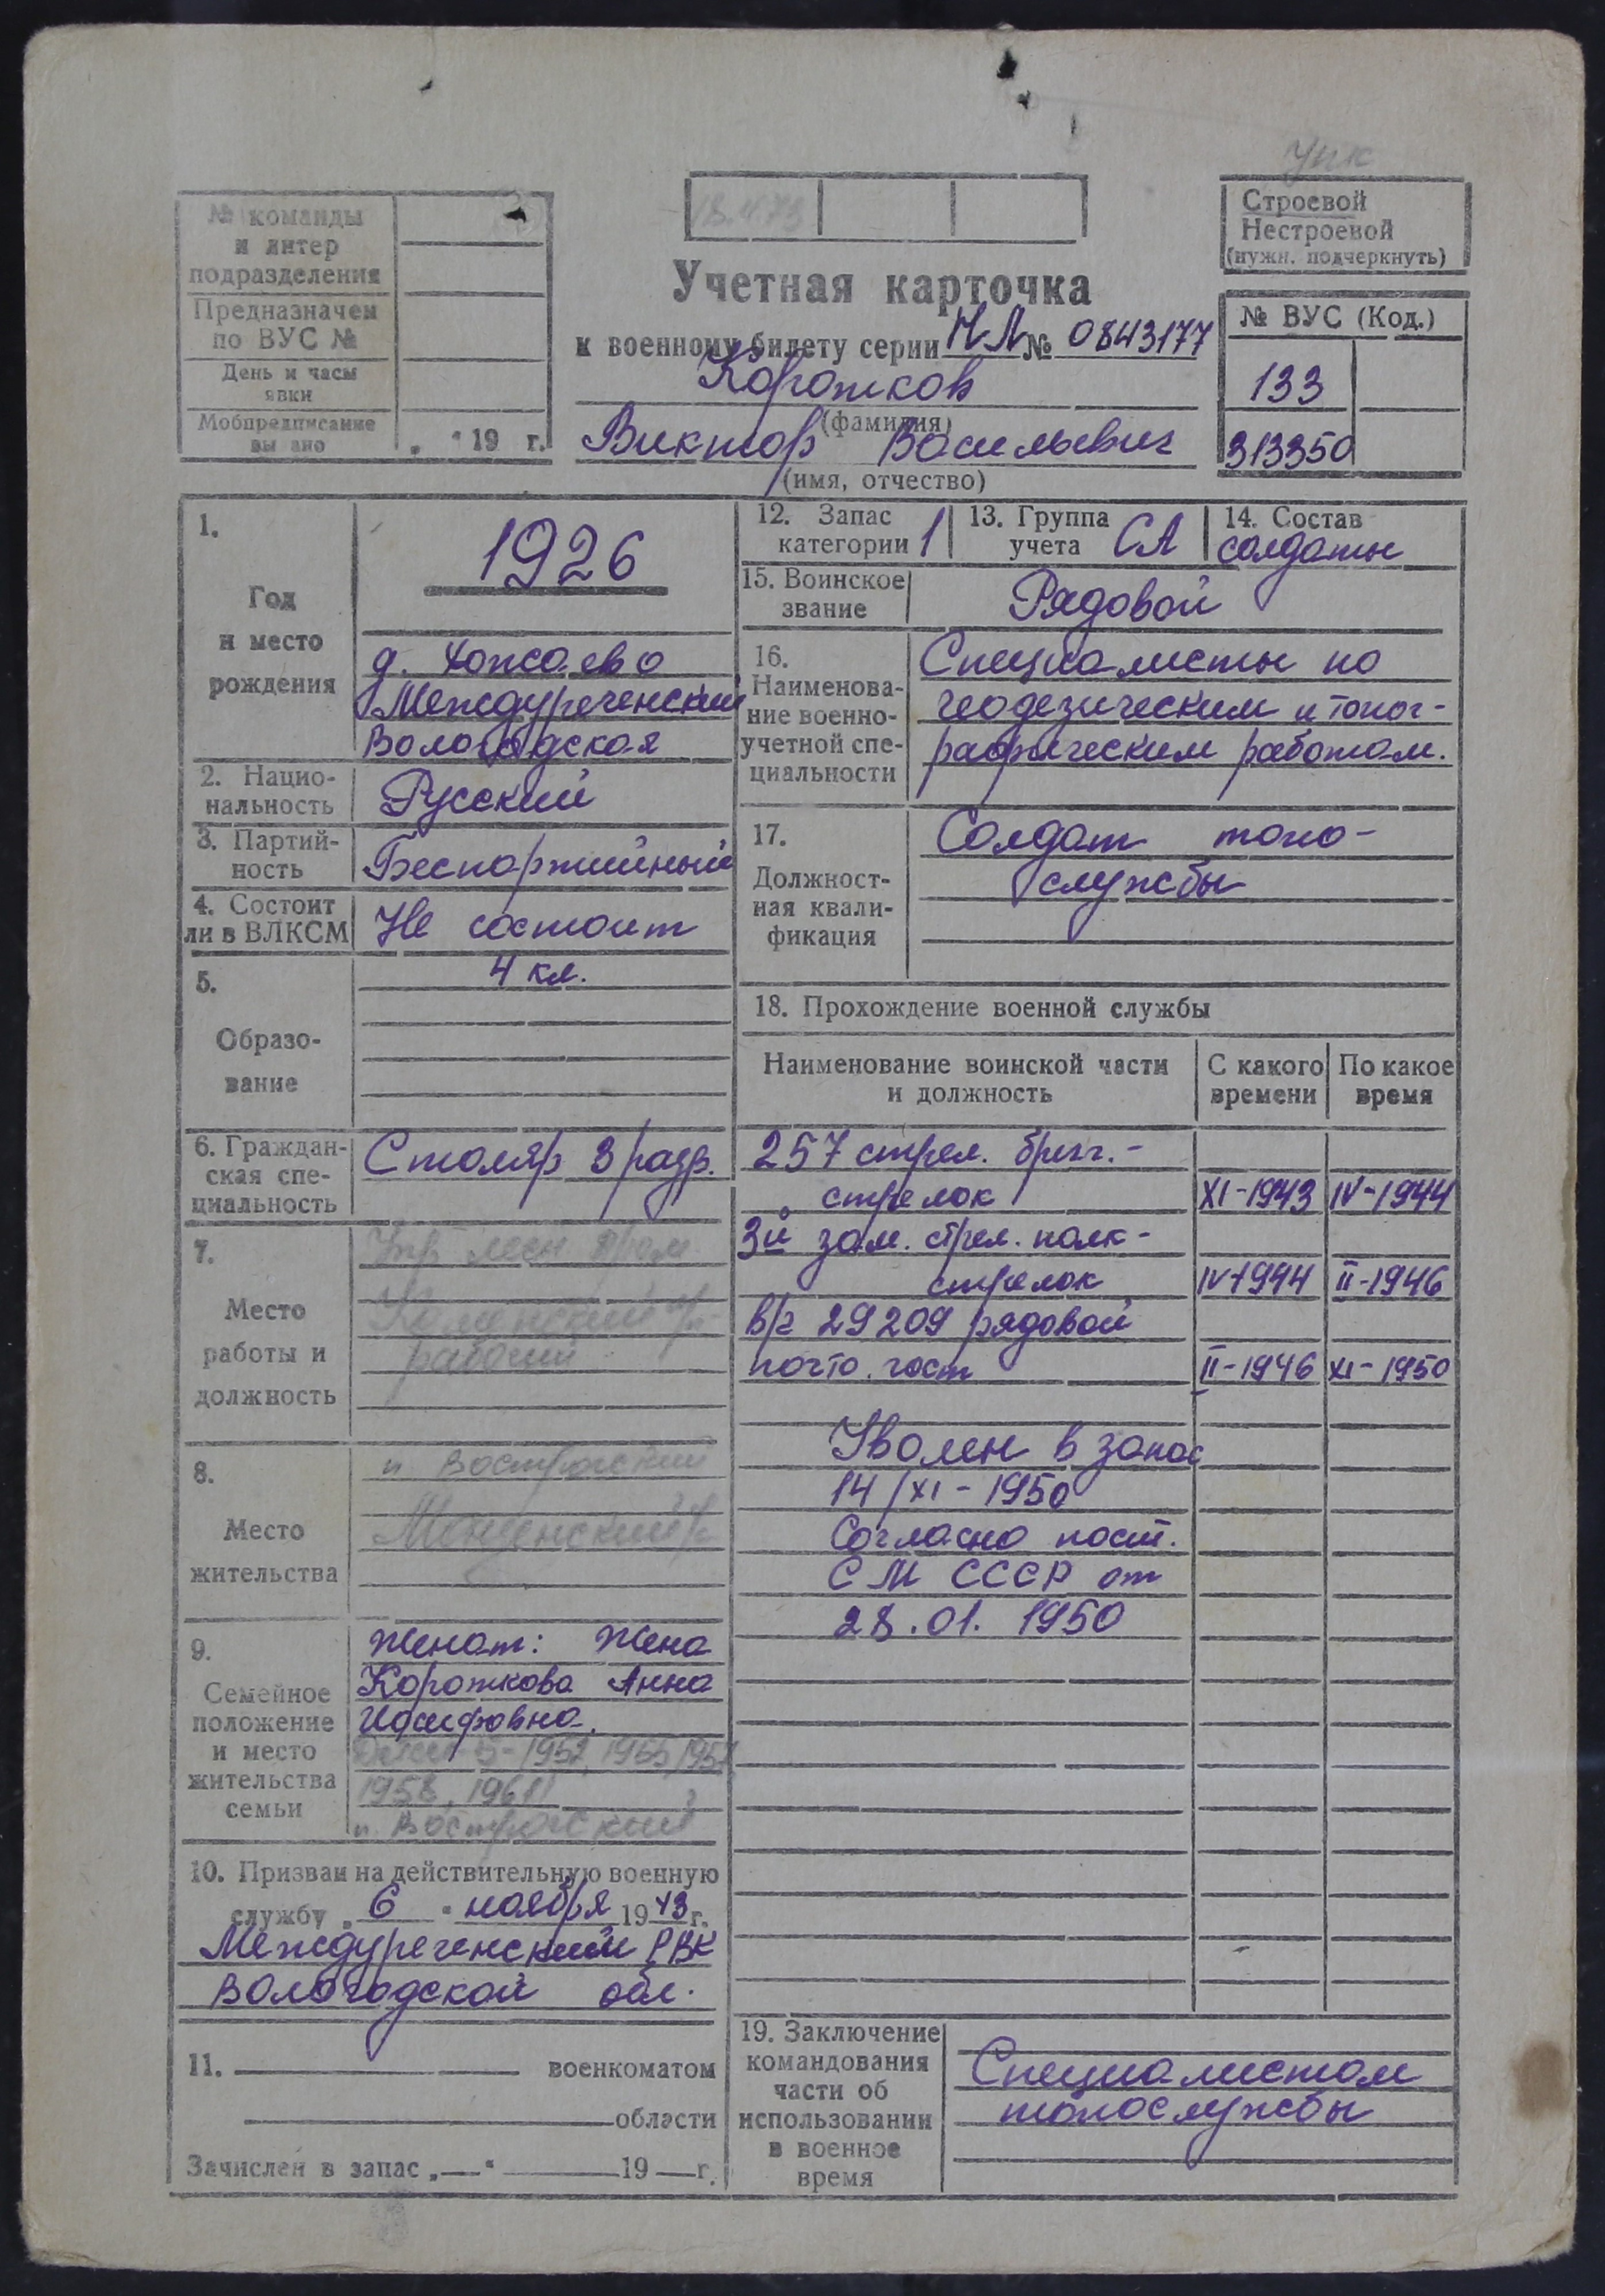 Упк
18.4.73
№ команды
и литер
подразделения
Предназначен
по ВУС №
День и часы
явки
Мобпредписание
вы ано
„ “ 19 г.
Строевой
Нестроевой
(нужн. подчеркнуть)
Учетная карточка
к военному билету серии НЛ № 0843177
Коротков
(фамилия)
Виктор Васильевич
(имя, отчество)
№ ВУС (Код.)
133
313350
1.
Год
и место
рождения
1926
д.
Междуреченский
Вологодская
2. Нацио-
нальность
Русский
3. Партий-
ность
Беспартийный
4. Состоит
ли в ВЛКСМ
Не состоит
5.
Образо-
вание
4 кл.
6. Граждан-
ская спе-
циальность
Столяр 3 разр.
7.
Место
работы и
должность
рабочий
8.
Место
жительства
п
9.
Семейное
положение
и место
жительства
семьи
Женат: Жена
Короткова Анна
1958, 1961
п.
10. Призван на действительную военную
службу „ 6 “ ноября 1943 г.
Междуреченский РВК
Вологодской обл.
11. военкоматом
области
Зачислен в запас „—“ 19 — г.
12. Запас
категории 1
13. Группа
учета СА
14. Состав
солдаты
15. Воинское
звание
Рядовой
16.
Наименова-
ние военно-
учетной спе-
циальности
Специалисты по
геодезическим и топог-
рафическим работам.
17.
Должност-
ная квали-
фикация
Солдат топо-
службы
18. Прохождение военной службы
Наименование воинской части
и должность
С какого
времени
По какое
время
257 стрел. бриг. -
стрелок XI-1943 IV-1944
3й зап. стрел. полк -
стрелок IV-1944 II-1946
в/ч 29209 рядовой
II-1946 XI-1950
Уволен в запас
14/XI-1950
Согласно пост.
СМ СССР от
28.01.1950
19. Заключение
командования
части об
использовании
в военное
время
Специалистом
топослужбы